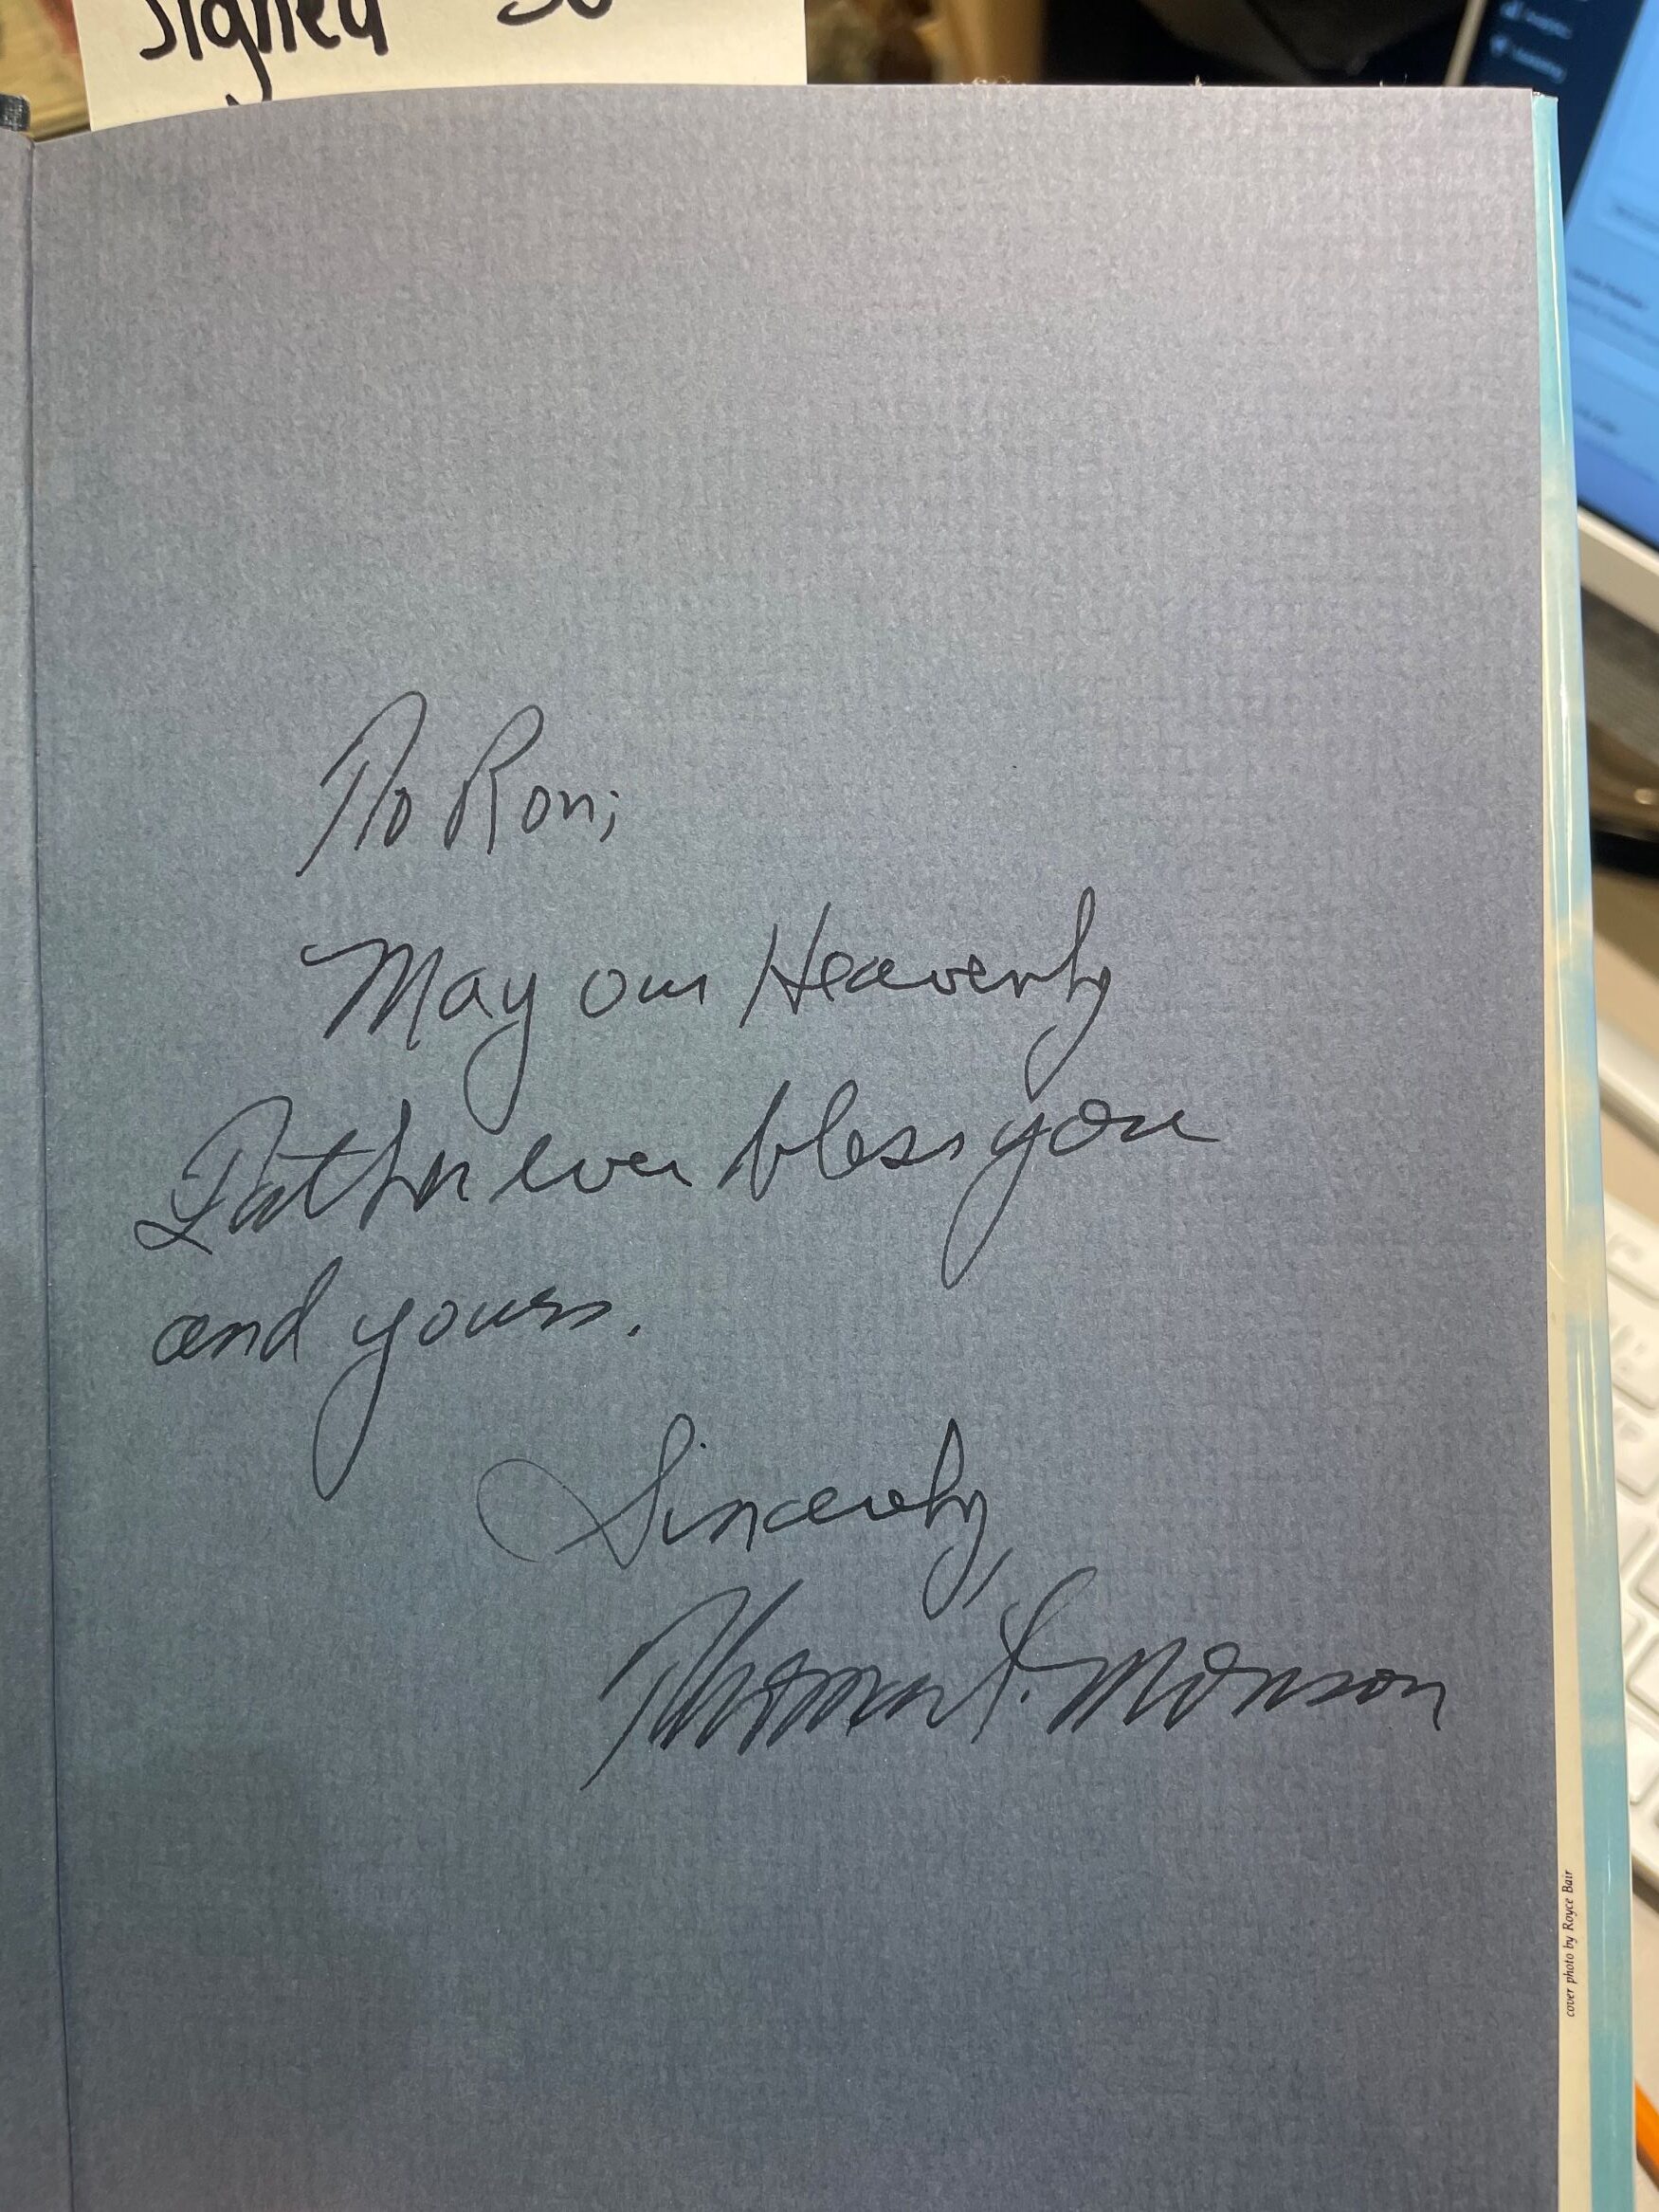 Signed
To Ron;
May our Heavenly
Father ever bless you
and yours.
Sincerely,
Thomas S. Monson
cover photo by Royce Bair